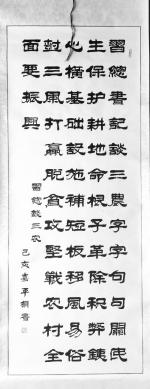 習總書記談三農字字句句關民
生保护耕地命根子革除積弊鐵
心橫基础設施補短板移風易俗
樹三風打贏脫貧攻堅戰农村全
面要振興
習總談三农
己亥嘉平 書